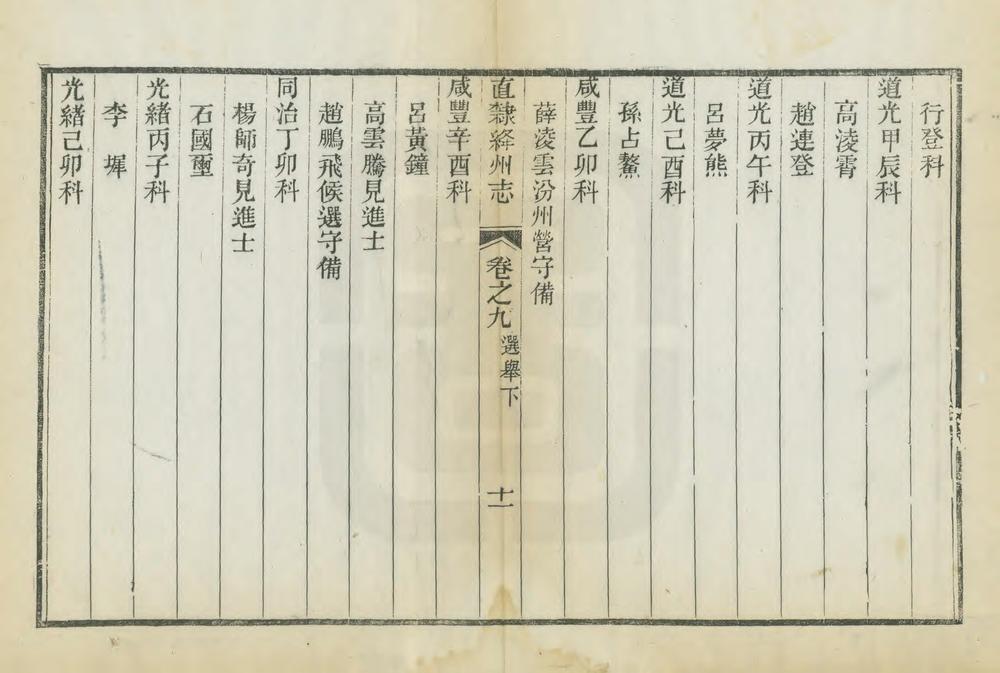 行登科
道光甲辰科
高淩霄
趙連登
道光丙午科
呂夢熊
道光己酉科
孫占鰲
咸豐乙卯科
薛淩雲汾州營守備
直隸絳州志 卷之九 選舉下 十一
咸豐辛酉科
呂黃鐘
高雲騰見進士
趙鵬飛候選守備
同治丁卯科
楊師奇見進士
石國璽
光緒丙子科
李墀
光緒己卯科